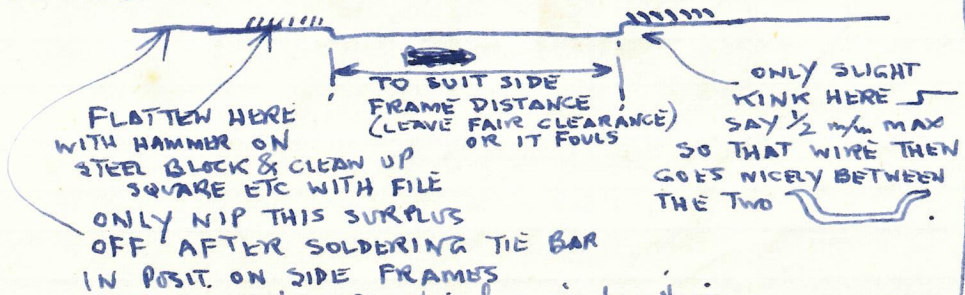 TO SUIT SIDE
FRAME DISTANCE
(LEAVE FAIR CLEARANCE)
OR IT FOULS
FLATTEN HERE
WITH HAMMER ON
STEEL BLOCK & CLEAN UP
SQUARE ETC WITH FILE
ONLY NIP THIS SURPLUS
OFF AFTER SOLDERING TIE BAR
IN POSIT. ON SIDE FRAMES
ONLY SLIGHT
KINK HERE
SAY 1/2 m/m MAX
SO THAT WIRE THEN
GOES NICELY BETWEEN
THE TWO